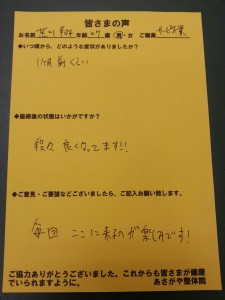 皆さまの声
お名前 年齢 27 歳 男・女 ご職業 サービス業
◆いつ頃から、どのような症状がありましたか？
1ヶ月前くらい
◆施術後の状態はいかがですか？
段々良くなってます!!
◆ご意見・ご要望などございましたら、ご記入お願い致します。
毎回ここに来るのが楽しみです!
ご協力ありがとうございました。これからも皆さまが健康
でいられますように。 あさがや整体院